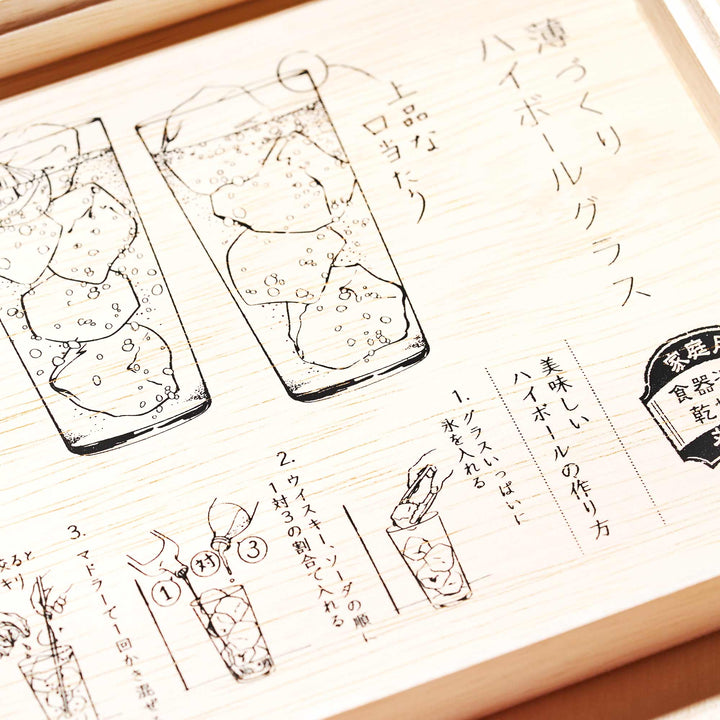 薄づくり
ハイボールグラス
上品な
口当たり
家庭用
食器洗
乾
美味しい
ハイボールの作り方
1.
グラスいっぱいに
氷を入れる
2.
ウイスキー、ソーダの順に
1対3の割合で入れる
1
対
3
3.
マドラーで1回かき混ぜ
絞ると
キリ